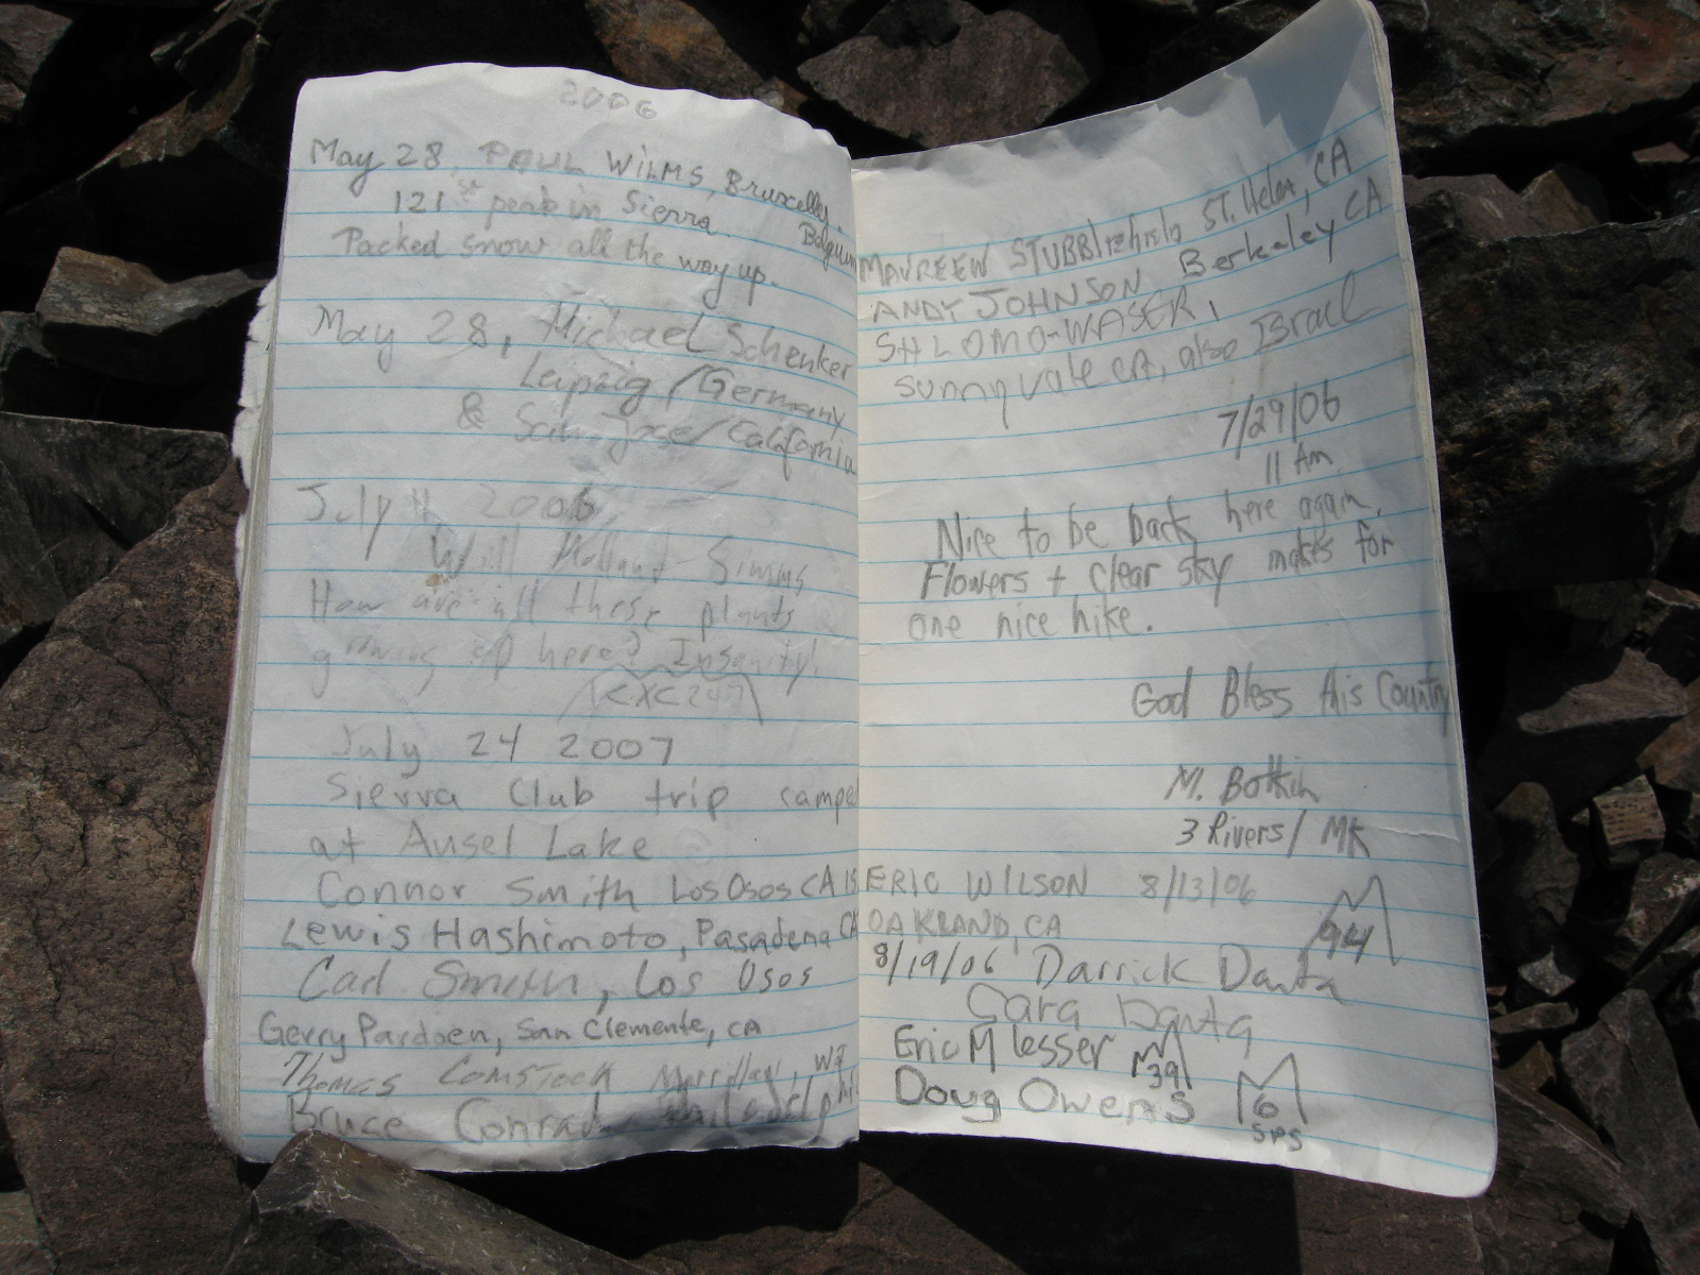 2006
May 28, PAUL WILMS, Bruxelles,
121st peak in Sierra. Belgium
Packed snow all the way up.
May 28, Michael Schenker
Leipzig / Germany
& San Jose / California
July 11 2006,
Will
How are all these plants
growing up here? Insanity!
July 24 2007
Sierra Club trip campe
at Ansel Lake
Connor Smith Los Osos CA 15
Lewis Hashimoto, Pasadena CA
Carl Smith, Los Osos
Gerry Pardoen, San Clemente, CA
Thomas Comstock
Bruce Conrad Philadelphi
MAUREEN ST. Helena, CA
ANDY JOHNSON Berkeley CA
SHLOMO WASER,
Sunnyvale CA, also
7/29/06
11 Am
Nice to be back here again.
Flowers + clear sky makes for
one nice hike.
God Bless this Country
M. Botkin
3 Rivers / MK
ERIC WILSON 8/13/06
OAKLAND, CA
94
8/19/06 Darrick Danta
Cara Danta
Eric M lesser 39
Doug Owens 6
SPS